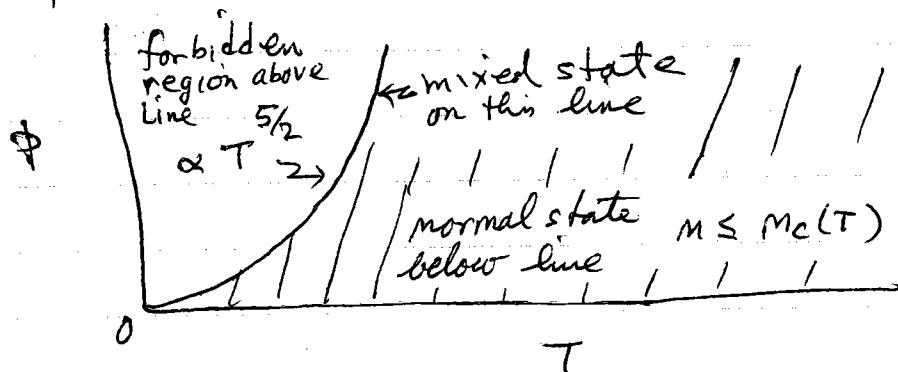 forbidden
region above
line
∝ T^5/2
←mixed state
on this line
p
normal state
below line
n ≤ nc(T)
0
T